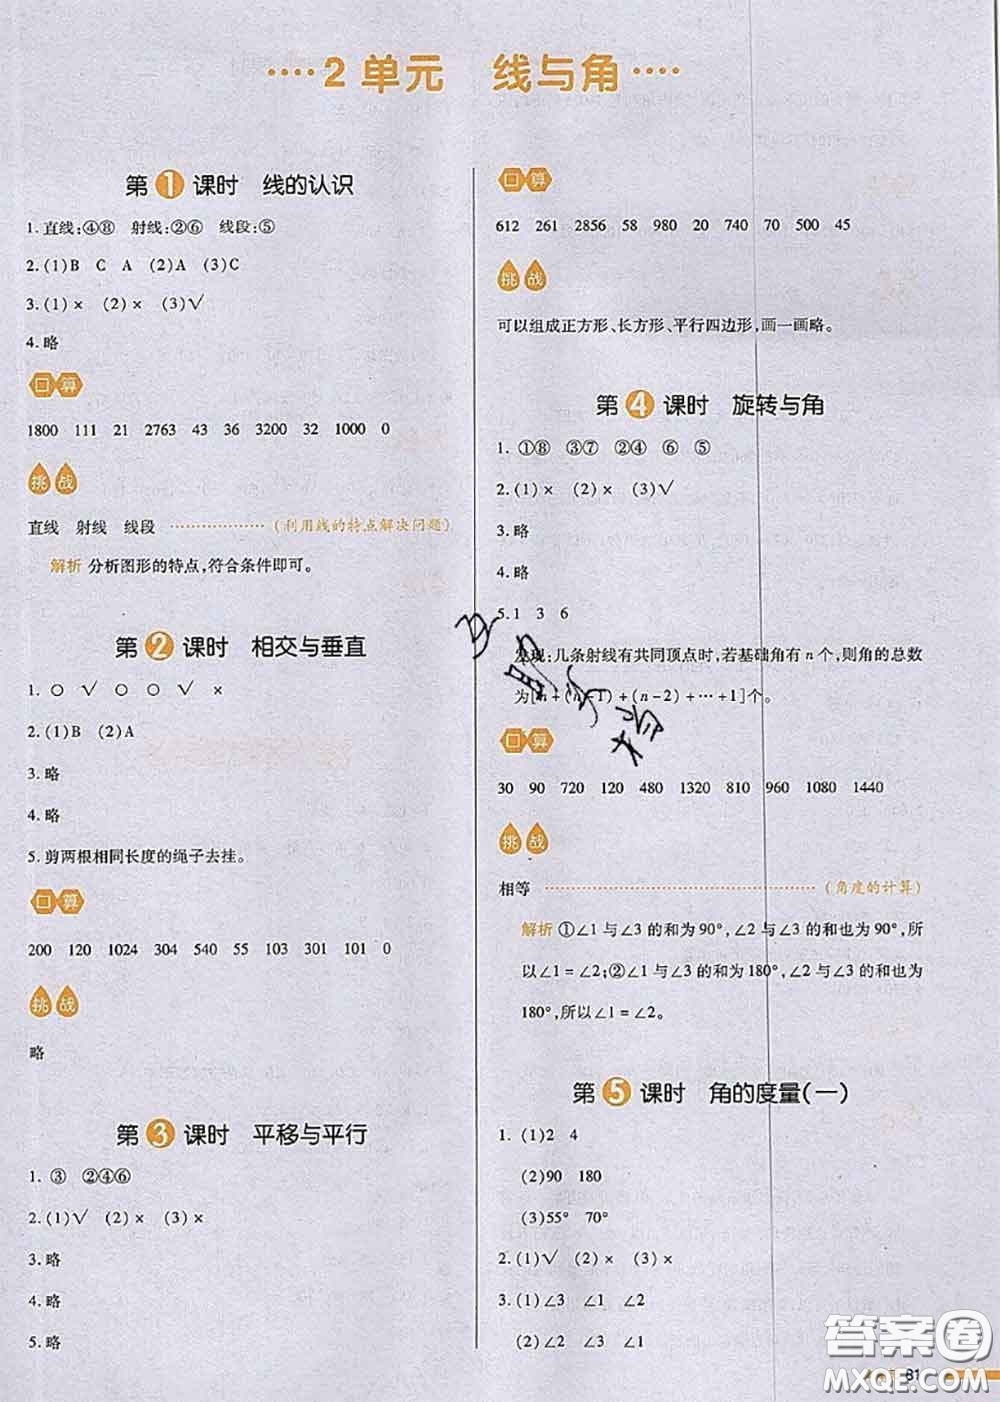 ····2 单元 线与角····
第1课时 线的认识
1.直线:④⑧ 射线:②⑥ 线段:⑤
2.(1)B C A (2)A (3)C
3.(1)× (2)× (3)√
4.略
口算
1800 111 21 2763 43 36 3200 32 1000 0
挑战
直线 射线 线段 ················ (利用线的特点解决问题)
解析 分析图形的特点,符合条件即可。
第2课时 相交与垂直
1. ○ √ ○ ○ √ ×
2.(1)B (2)A
3.略
4.略
5.剪两根相同长度的绳子去挂。
口算
200 120 1024 304 540 55 103 301 101 0
挑战
略
第3课时 平移与平行
1. ③ ②④⑥
2.(1)√ (2)× (3)×
3.略
4.略
5.略
口算
612 261 2856 58 980 20 740 70 500 45
挑战
可以组成正方形、长方形、平行四边形,画一画略。
第4课时 旋转与角
1. ①⑧ ③⑦ ②④ ⑥ ⑤
2.(1)× (2)× (3)√
3.略
4.略
5.1 3 6
发现:几条射线有共同顶点时,若基础角有n个,则角的总数
为[n+(n-1)+(n-2)+…+1]个。
口算
30 90 720 120 480 1320 810 960 1080 1440
挑战
相等 ················ (角度的计算)
解析 ①∠1与∠3的和为90°,∠2与∠3的和也为90°,所
以∠1=∠2;②∠1与∠3的和为180°,∠2与∠3的和也为
180°,所以∠1=∠2。
第5课时 角的度量(一)
1. (1)2 4
(2)90 180
(3)55° 70°
2.(1)√ (2)× (3)×
3.(1)∠3 ∠1 ∠2
(2)∠2 ∠3 ∠1
答案圈
MXQE.COM
81